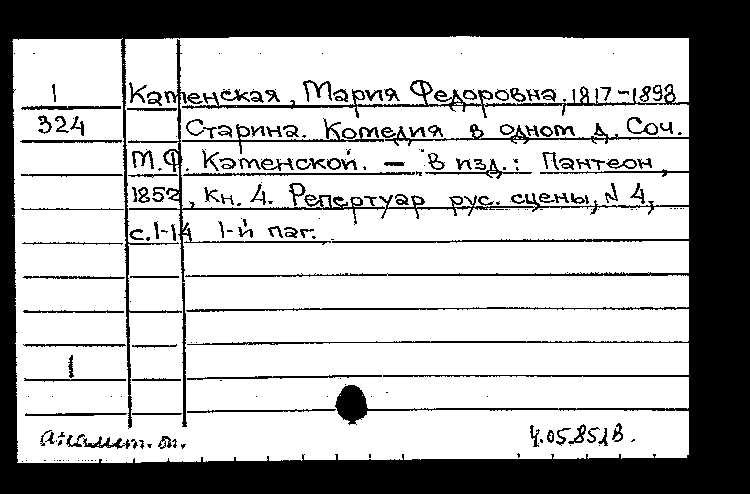 1 Каменская, Мария Федоровна, 1817-1898
324 Старина. Комедия в одном д. Соч.
М.Ф. Каменской. — В изд.: Пантеон,
1852, кн. 4. Репертуар рус. сцены, N 4,
с.1-14 1-й паг.
1
аналит. оп.
4.05.85